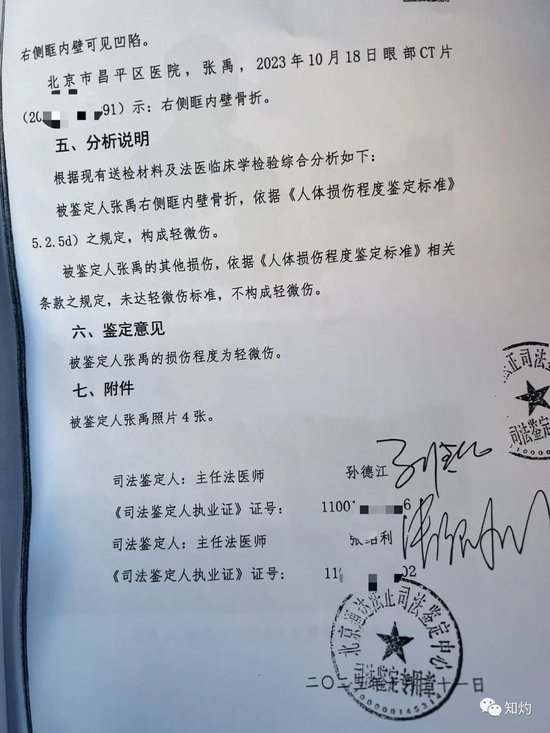 右侧眶内壁可见凹陷。
北京市昌平区医院，张禹，2023年10月18日眼部CT片
(20 91）示：右侧眶内壁骨折。
五、分析说明
根据现有送检材料及法医临床学检验综合分析如下：
被鉴定人张禹右侧眶内壁骨折，依据《人体损伤程度鉴定标准》
5.2.5d）之规定，构成轻微伤。
被鉴定人张禹的其他损伤，依据《人体损伤程度鉴定标准》相关
条款之规定，未达轻微伤标准，不构成轻微伤。
六、鉴定意见
被鉴定人张禹的损伤程度为轻微伤。
七、附件
被鉴定人张禹照片4张。
司法鉴定人：主任法医师 孙德江
《司法鉴定人执业证》证号： 1100 6
司法鉴定人：主任法医师 张 利
《司法鉴定人执业证》证号： 11 02
北京通达法正司法鉴定中心
司法鉴定专用章
1100000145314
二〇二 十一日
法正司法鉴定
司法鉴定专
知灼